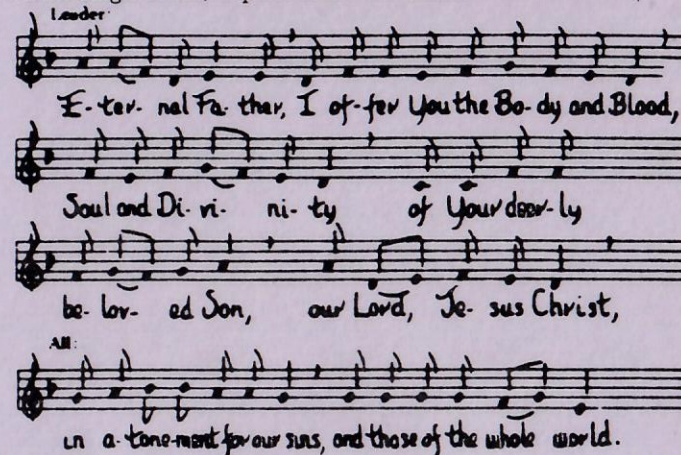 Leader:
E-ter-nal Fa-ther, I of-fer You the Bo-dy and Blood,
Soul and Di-vi-ni-ty of Your dear-ly
be-lov-ed Son, our Lord, Je-sus Christ,
All:
in a-tone-ment for our sins, and those of the whole world.